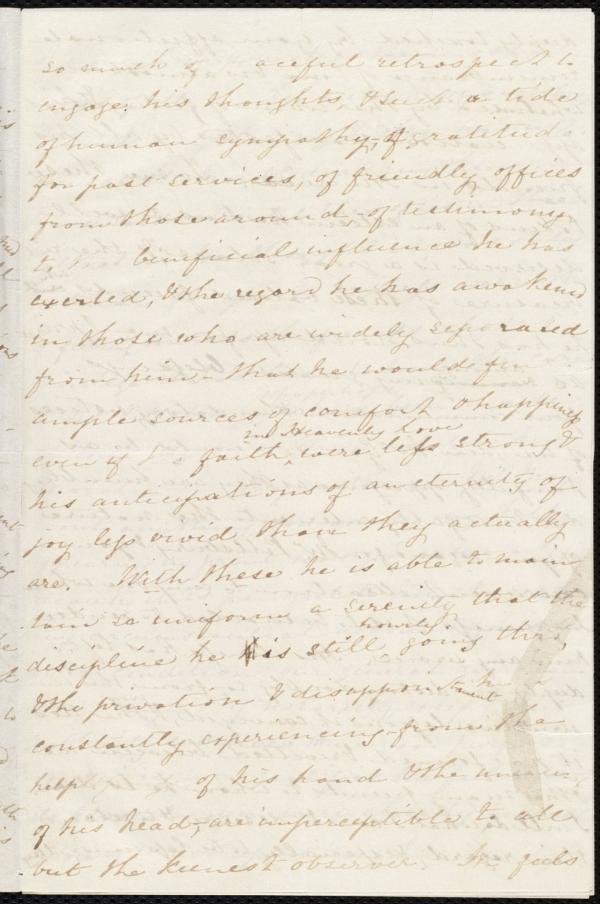 so much of aceful retrospect to
engage his thoughts, & such a tide
of human sympathy, of gratitude
for past services, of friendly offices
from those around - of testimony
to beneficial influence he has
exerted, & the regard he has awakened
in those who are widely separated
from him - that he would fin
ample sources of comfort & happiness
in Heavenly love
even if his faith, were less strong &
his anticipations of an eternity of
joy less vivid than they actually
are. With these he is able to main
tain so uniform a serenity that the
hourly
discipline he is still going thro',
& the privation & disappointment he
constantly experiencing from the
help of his hand & the
of his head, are imperceptible to all
but the keenest observer. He feels